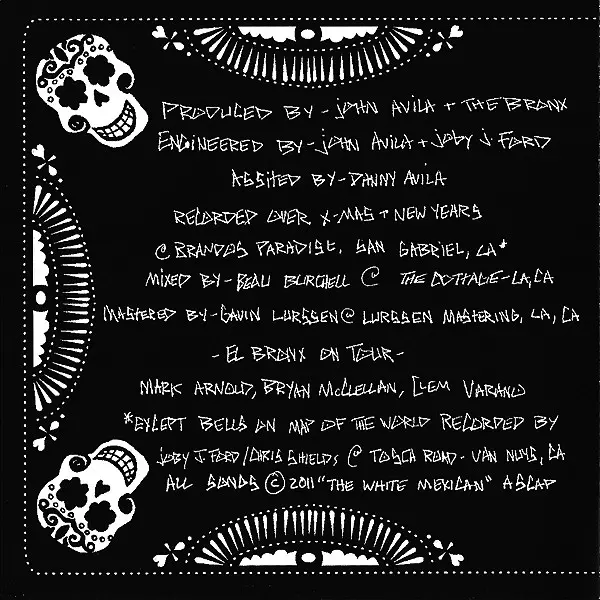 PRODUCED BY - JOHN AVILA + THE BRONX
ENGINEERED BY - JOHN AVILA + JOBY J FORD
ASSITED BY - DANNY AVILA
RECORDED OVER X-MAS + NEW YEARS
@ BRANDOS PARADISE, SAN GABRIEL, CA*
MIXED BY - BEAU BURCHELL @ THE COTTAGE - LA, CA
MASTERED BY - GAVIN LURSSEN @ LURSSEN MASTERING, LA, CA
- EL BRONX ON TOUR -
MARK ARNOLD, BRYAN MCCLELLAN, CLEM VARANO
*EXCEPT BELLS ON MAP OF THE WORLD RECORDED BY
JOBY J FORD/CHRIS SHIELDS @ TOSCA ROAD - VAN NUYS, CA
ALL SONGS © 2011 "THE WHITE MEXICAN" ASCAP